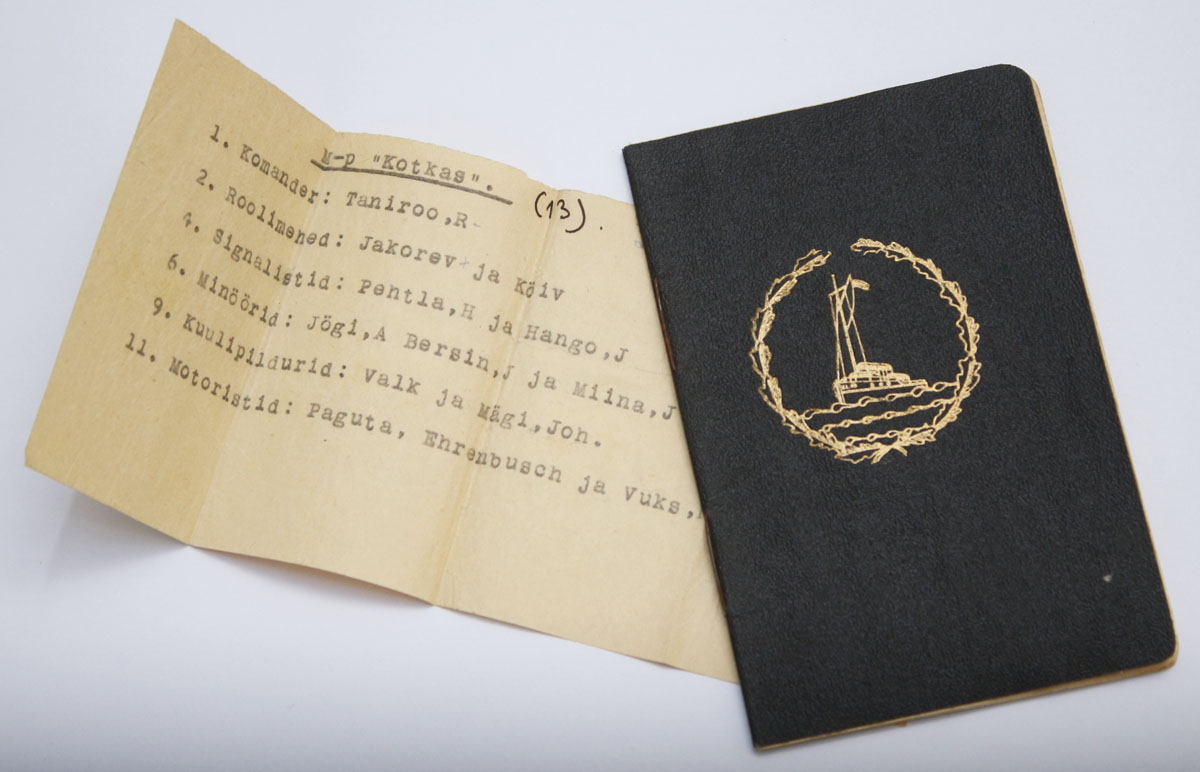 M-p "Kotkas". (13).
1. Komander: Taniroo,R
2. Roolimehed: Jakorev ja Kõiv
4. Signalistid: Pentla,H ja Hango,J
6. Minöörid: Jõgi,A Bersin,J ja Miina,J
9. Kuulipildurid: Valk ja Mägi,Joh.
11. Motoristid: Paguta, Ehrenbusch ja Vuks,